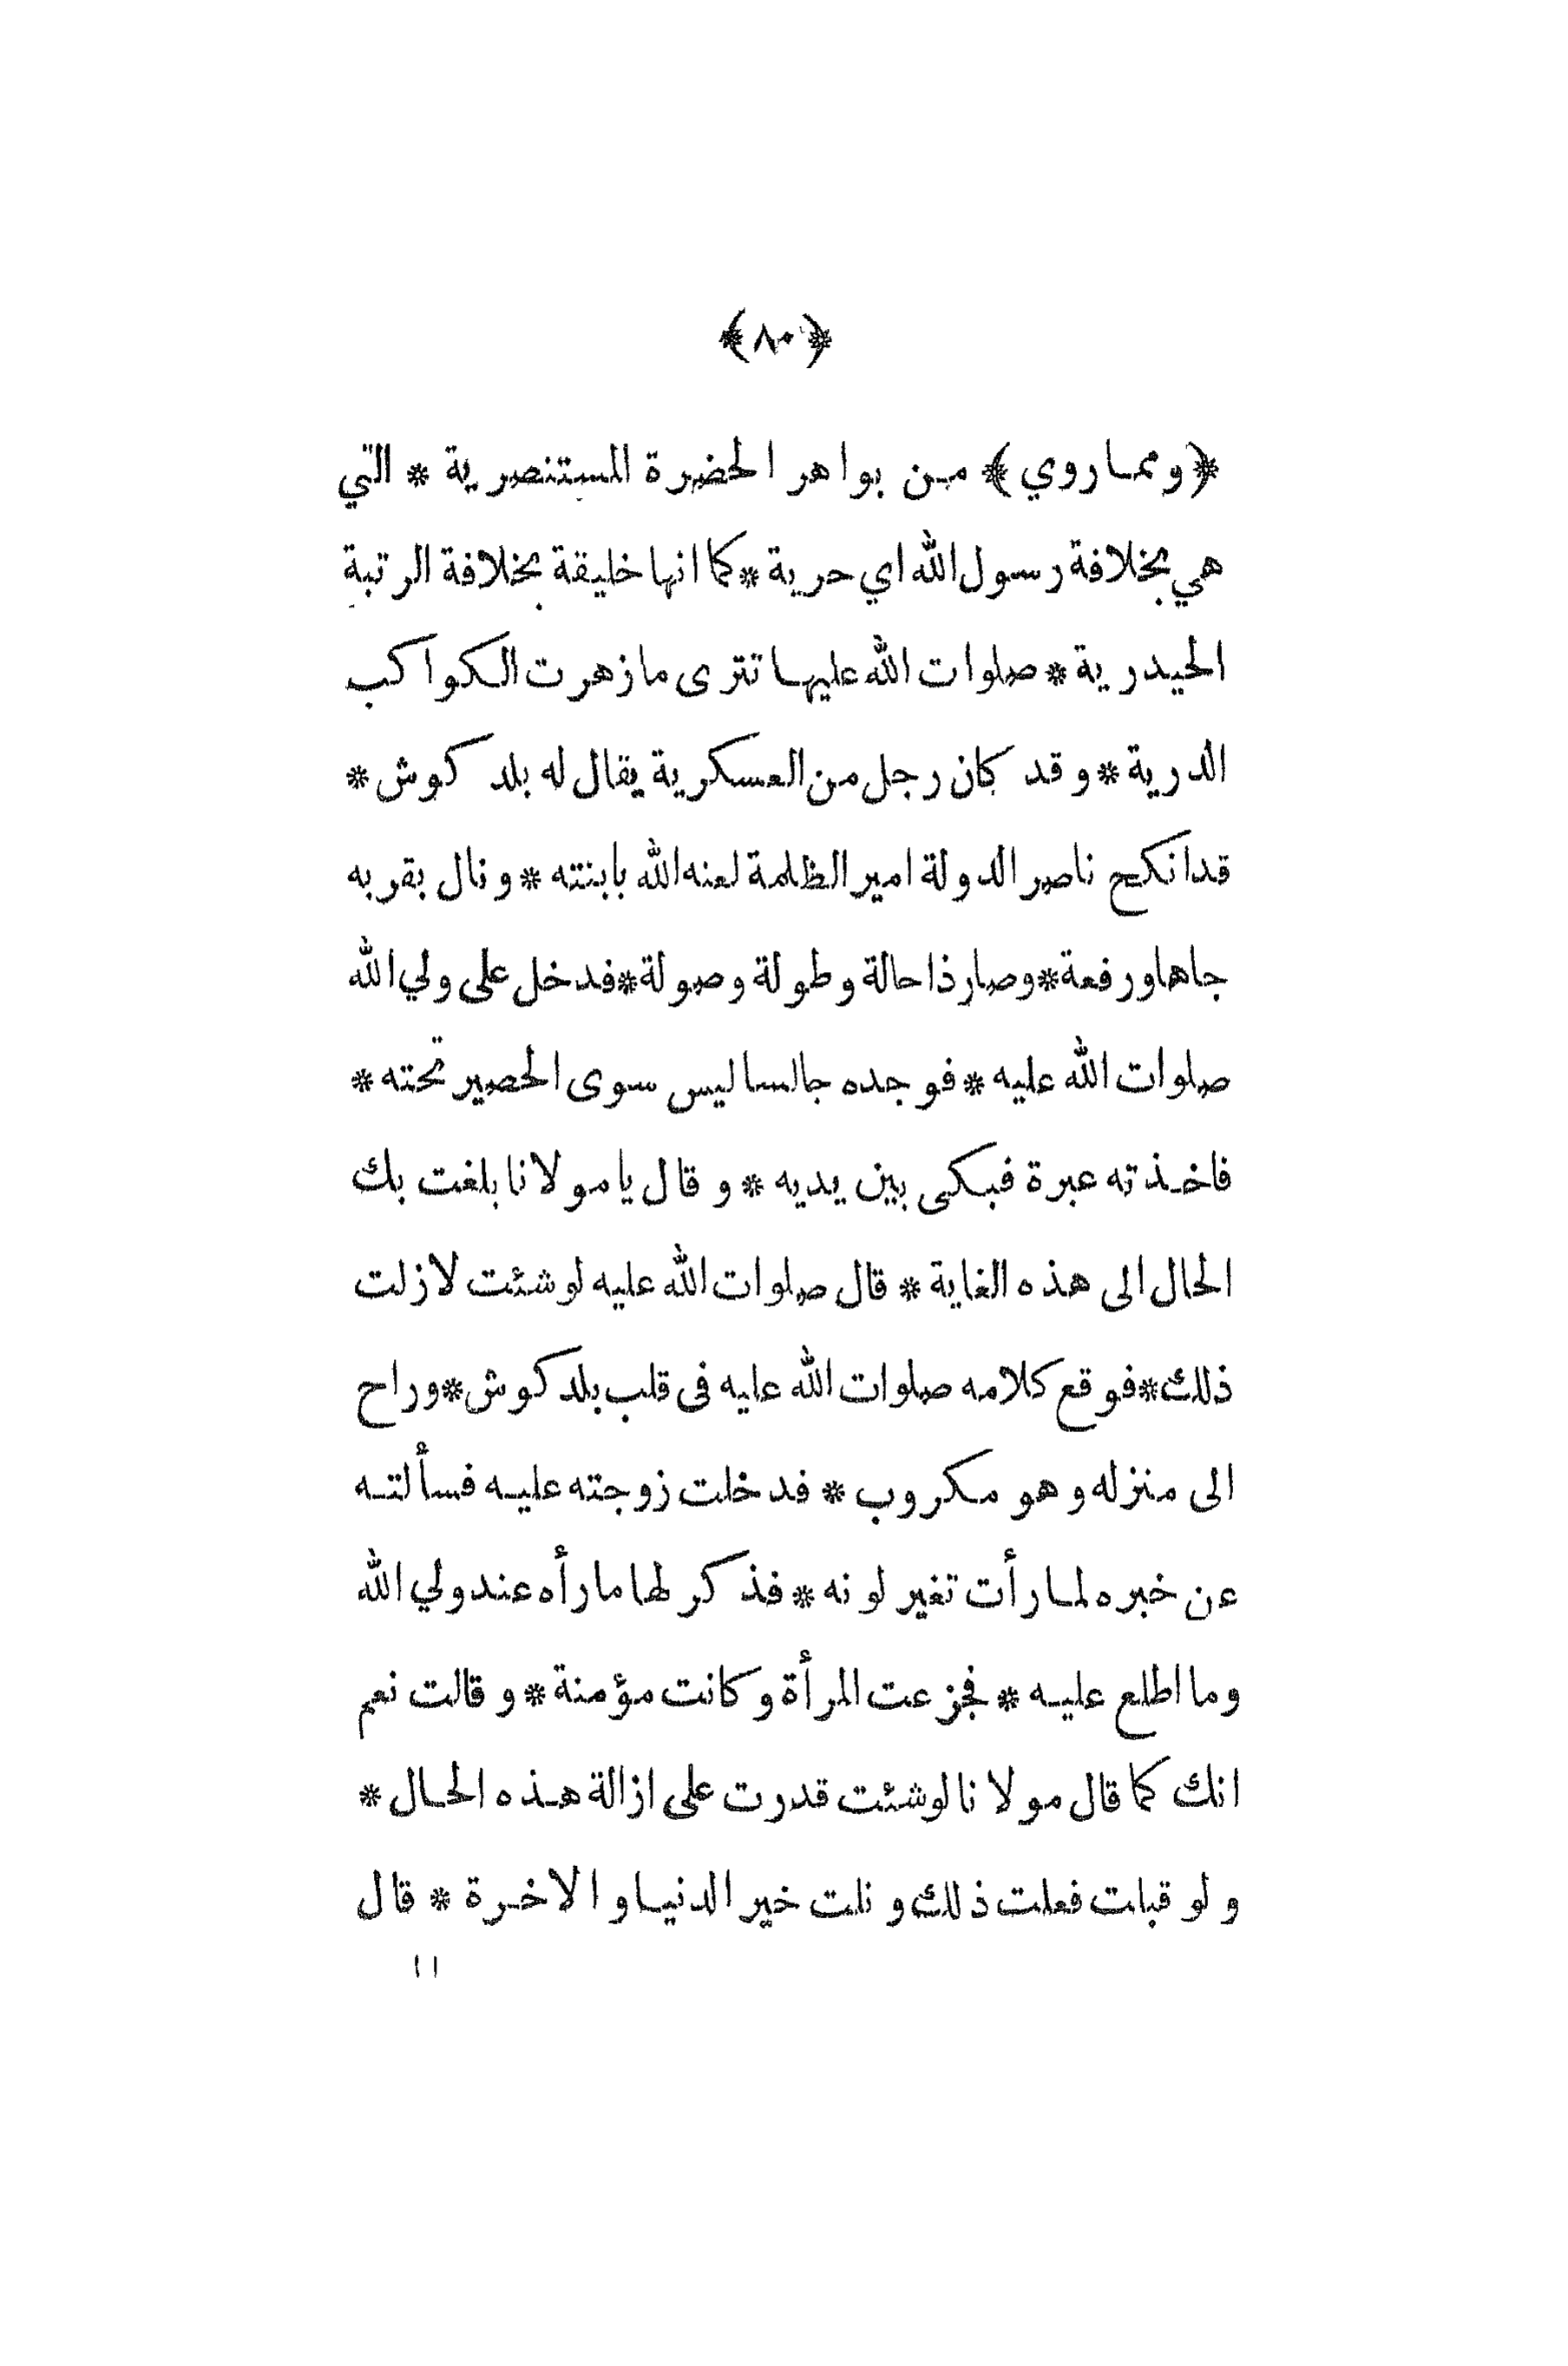 ﴿٨٠﴾
﴿ومماروي﴾ من بواهر الحضرة المستنصرية * التي
هي بخلافة رسول الله اي حرية * كما انها خليقة بخلافة الرتبة
الحيدرية * صلوات الله عليها تترى ما زهرت الكواكب
الدرية * وقد كان رجل من العسكرية يقال له بلد كوش *
قد انكح ناصر الدولة امير الظلمة لعنه الله بابنته * ونال بقربه
جاها ورفعة * وصار ذا حالة وطولة وصولة * فدخل على ولي الله
صلوات الله عليه * فوجده جالسا ليس سوى الحصير تحته *
فاخذته عبرة فبكى بين يديه * وقال يا مولانا بلغت بك
الحال الى هذه الغاية * قال صلوات الله عليه لو شئت لازلت
ذلك * فوقع كلامه صلوات الله عليه فى قلب بلد كوش * وراح
الى منزله وهو مكروب * فدخلت زوجته عليه فسألته
عن خبره لما رأت تغير لونه * فذكر لها ما رأه عند ولي الله
وما اطلع عليه * فجزعت المرأة وكانت مؤمنة * وقالت نعم
انك كما قال مولانا لو شئت قدرت على ازالة هذه الحال *
ولو قبلت فعلت ذلك ونلت خير الدنيا والاخرة * قال
١١